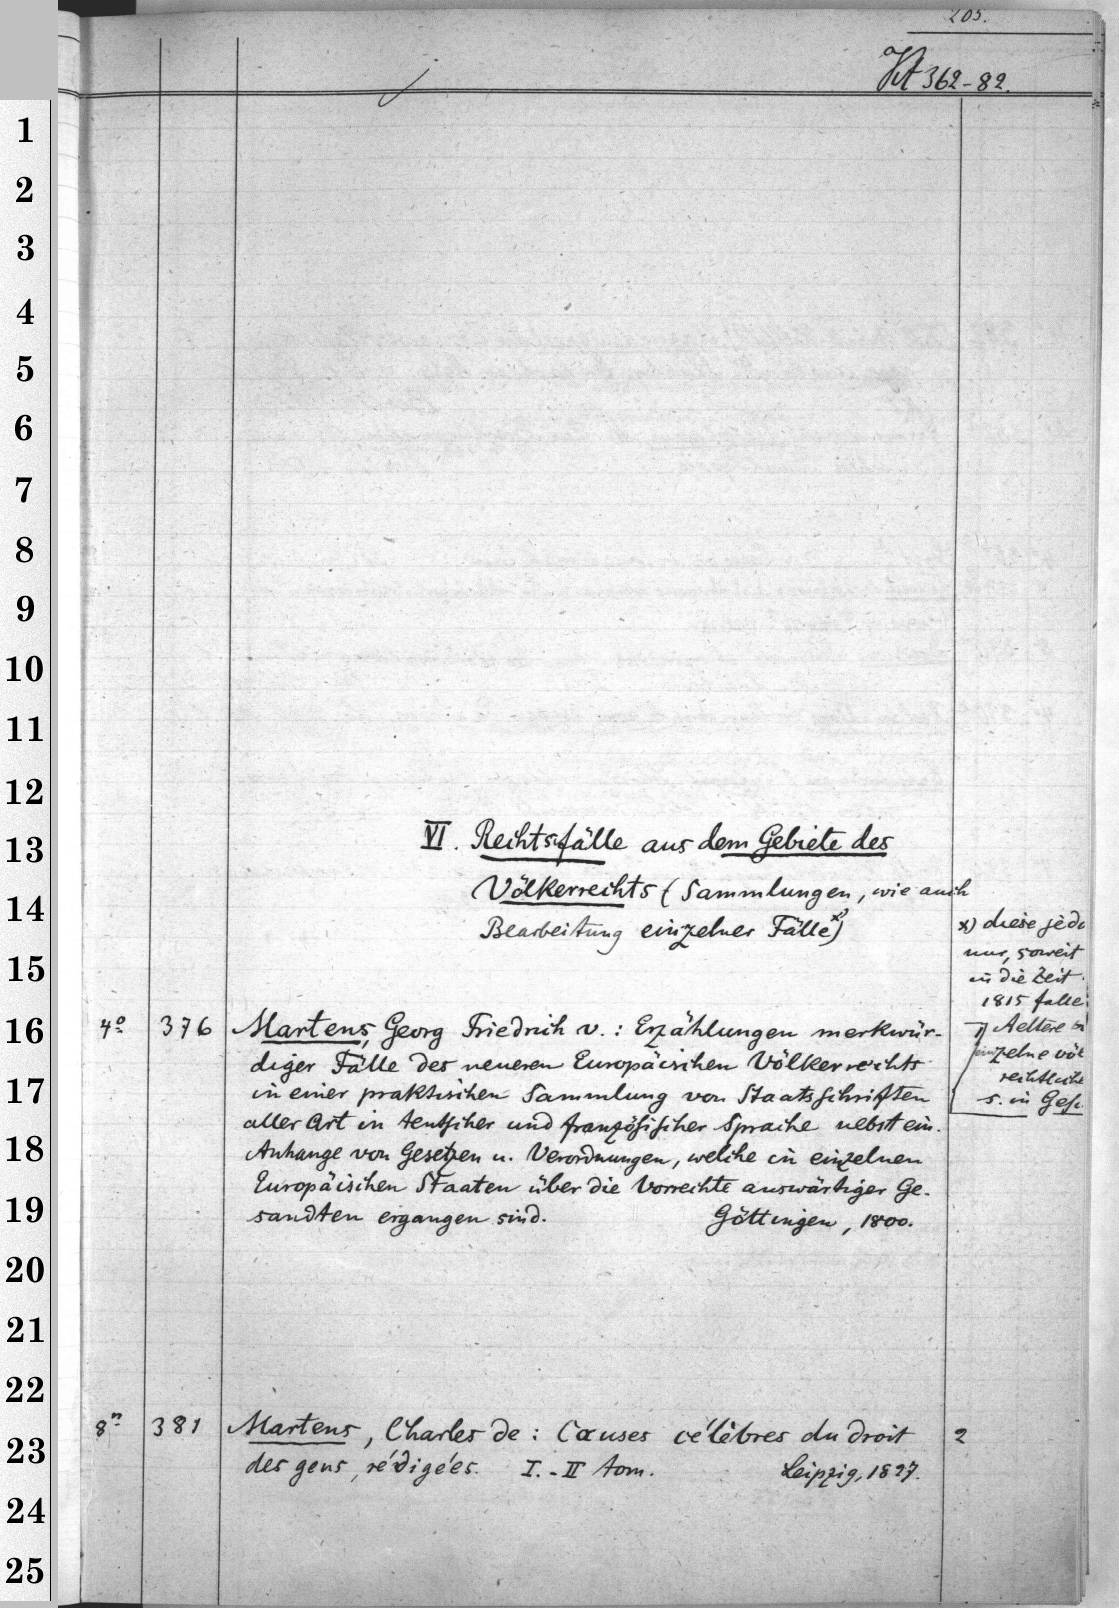 205.
362-82.
VI. Rechtsfälle aus dem Gebiete des
Völkerrechts (Sammlungen, wie auch
Bearbeitung einzelner Fälle x))
x) diese jedo
nur, soweit
in die Zeit
1815 falle
Aeltere
einzelne völ
rechtliche
s. in Gesch.
4o 376 Martens, Georg Friedrich v.: Erzählungen merkwür-
diger Fälle des neueren Europäischen Völkerrechts
in einer praktischen Sammlung von Staatsschriften
aller Art in teutscher und französischer Sprache nebst ein.
Anhange von Gesetzen u. Verordnungen, welche in einzelnen
Europäischen Staaten über die Vorrechte auswärtiger Ge-
sandten ergangen sind. Göttingen, 1800.
8o 381 Martens, Charles de: Causes célèbres du droit 2
des gens, rédigées. I.-II tom. Leipzig, 1827.
1
2
3
4
5
6
7
8
9
10
11
12
13
14
15
16
17
18
19
20
21
22
23
24
25